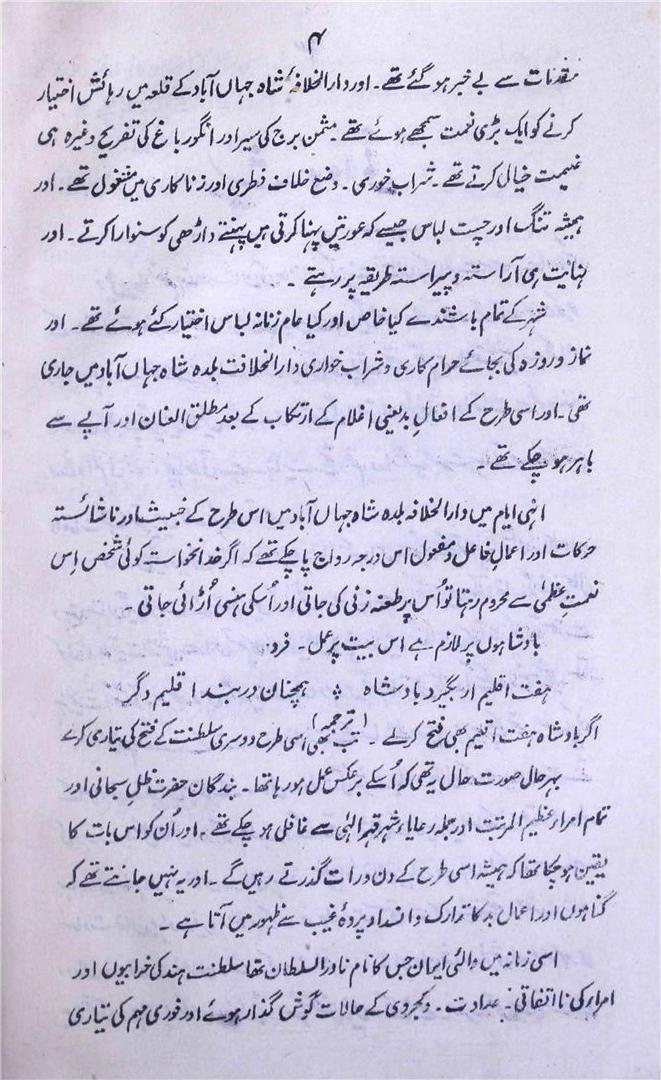 ۴
مقدمات سے بے خبر ہو گئے تھے ۔ اور دار الخلافۂ شاہ جہاں آباد کے قلعہ میں رہائش اختیار
کرنے کو ایک بڑی نعمت سمجھے ہوئے تھے ۔ مثمن برج کی سیر اور انگور باغ کی تفریح وغیرہ ہی
غنیمت خیال کرتے تھے ۔ شراب خوری ۔ وضع خلاف فطری اور زنا کاری میں مشغول تھے ۔ اور
ہمیشہ تنگ اور چست لباس جیسے کہ عورتیں پہنا کرتی ہیں پہنتے داڑھی کو سنوارا کرتے ۔ اور
نہایت ہی آراستہ و پیراستہ طریقہ پر رہتے ۔
شہر کے تمام باشندے کیا خاص اور کیا عام زنانہ لباس اختیار کئے ہوئے تھے ۔ اور
نماز و روزہ کی بجائے حرام کاری و شراب خواری دار الخلافت بلدہ شاہ جہاں آباد میں جاری
تھی ۔ اور اسی طرح کے افعالِ بد یعنی اغلام کے ارتکاب کے بعد مطلق العنان اور آپے سے
باہر ہو چکے تھے ۔
انہی ایام میں دار الخلافہ بلدہ شاہ جہاں آباد میں اس طرح کے خبیث اور ناشائستہ
حرکات اور اعمال فاعل و مفعول اس درجہ رواج پا چکے تھے کہ اگر خدانخواستہ کوئی شخص اِس
نعمتِ عظمیٰ سے محروم رہتا تو اُس پر طعنہ زنی کی جاتی اور اُسکی ہنسی اُڑائی جاتی ۔
بادشاہوں پر لازم ہے اس بیت پر عمل ۔ فرد
ہفت اقلیم ار بگیرد بادشاہ ؞ ہمچناں در بند اقلیم دگر
اگر بادشاہ ہفت اقلیم بھی فتح کرلے ۔ (ترجمہ) تب بھی اسی طرح دوسری سلطنت کے فتح کی تیاری کرے
بہرحال صورت حال یہ تھی کہ اُسکے برعکس عمل ہو رہا تھا ۔ بندگان حضرت ظلِ سبحانی اور
تمام امراء عظیم المرتبت اور جملہ رعایاء شہر قہرِ الٰہی سے غافل ہو چکے تھے ۔ اور اُن کو اس بات کا
یقین ہو چکا تھا کہ ہمیشہ اسی طرح کے دن و رات گذرتے رہیں گے ۔ اور یہ نہیں جانتے تھے کہ
گناہوں اور اعمال بد کا تدارک و انسداد پردۂ غیب سے ظہور میں آتا ہے ۔
اسی زمانہ میں والئی ایران جس کا نام نادر السلطان تھا سلطنت ہند کی خرابیوں اور
امراء کی نا اتفاقی ۔ عداوت ۔ و کجروی کے حالات گوش گذار ہوئے اور فوری مہم کی تیاری